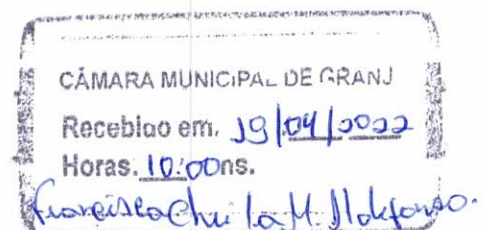 CÂMARA MUNICIPAL DE GRANJ
Recebido em. 19/04/2022
Horas. 10:00hs.
Francisca M. Ildefonso.